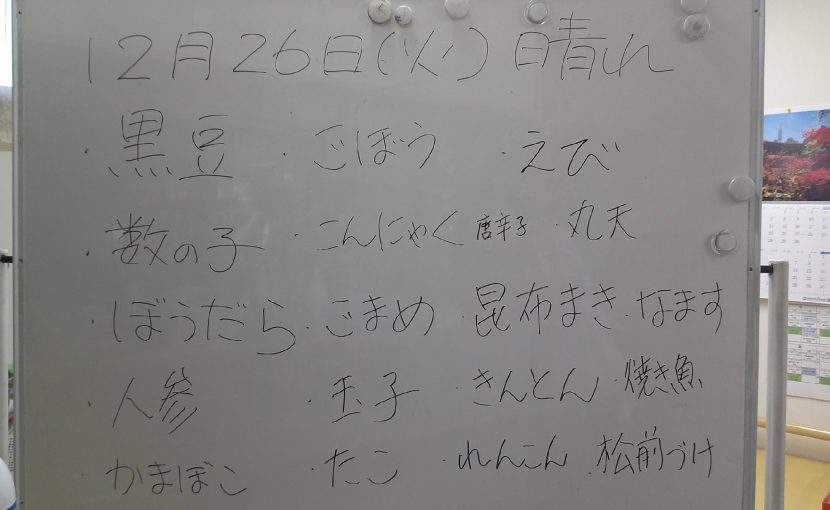 12月26日(火) 晴れ
・黒豆 ・ごぼう ・えび
・数の子 ・こんにゃく 唐辛子 ・丸天
・ぼうだら ・ごまめ ・昆布まき ・なます
・人参 ・玉子 ・きんとん ・焼き魚
・かまぼこ ・たこ ・れんこん ・松前づけ